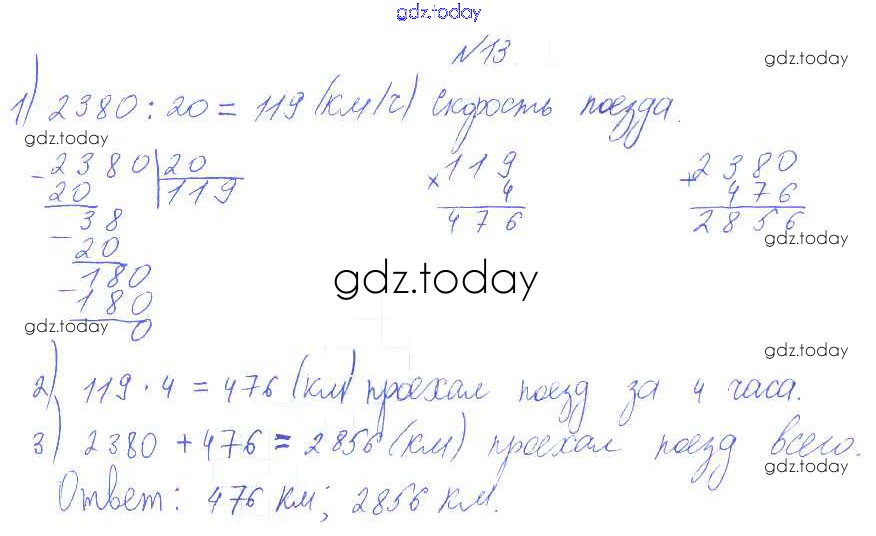 gdz.today
№13
gdz.today
1) 2380 : 20 = 119 (км/ч) скорость поезда.
gdz.today
- 2380 | 20
20 | 119
- 38
20
- 180
180
0
× 119
4
476
+ 2380
476
2856
gdz.today
gdz.today
gdz.today
gdz.today
2) 119 · 4 = 476 (км) проехал поезд за 4 часа.
3) 2380 + 476 = 2856 (км) проехал поезд всего.
gdz.today
Ответ: 476 км; 2856 км.